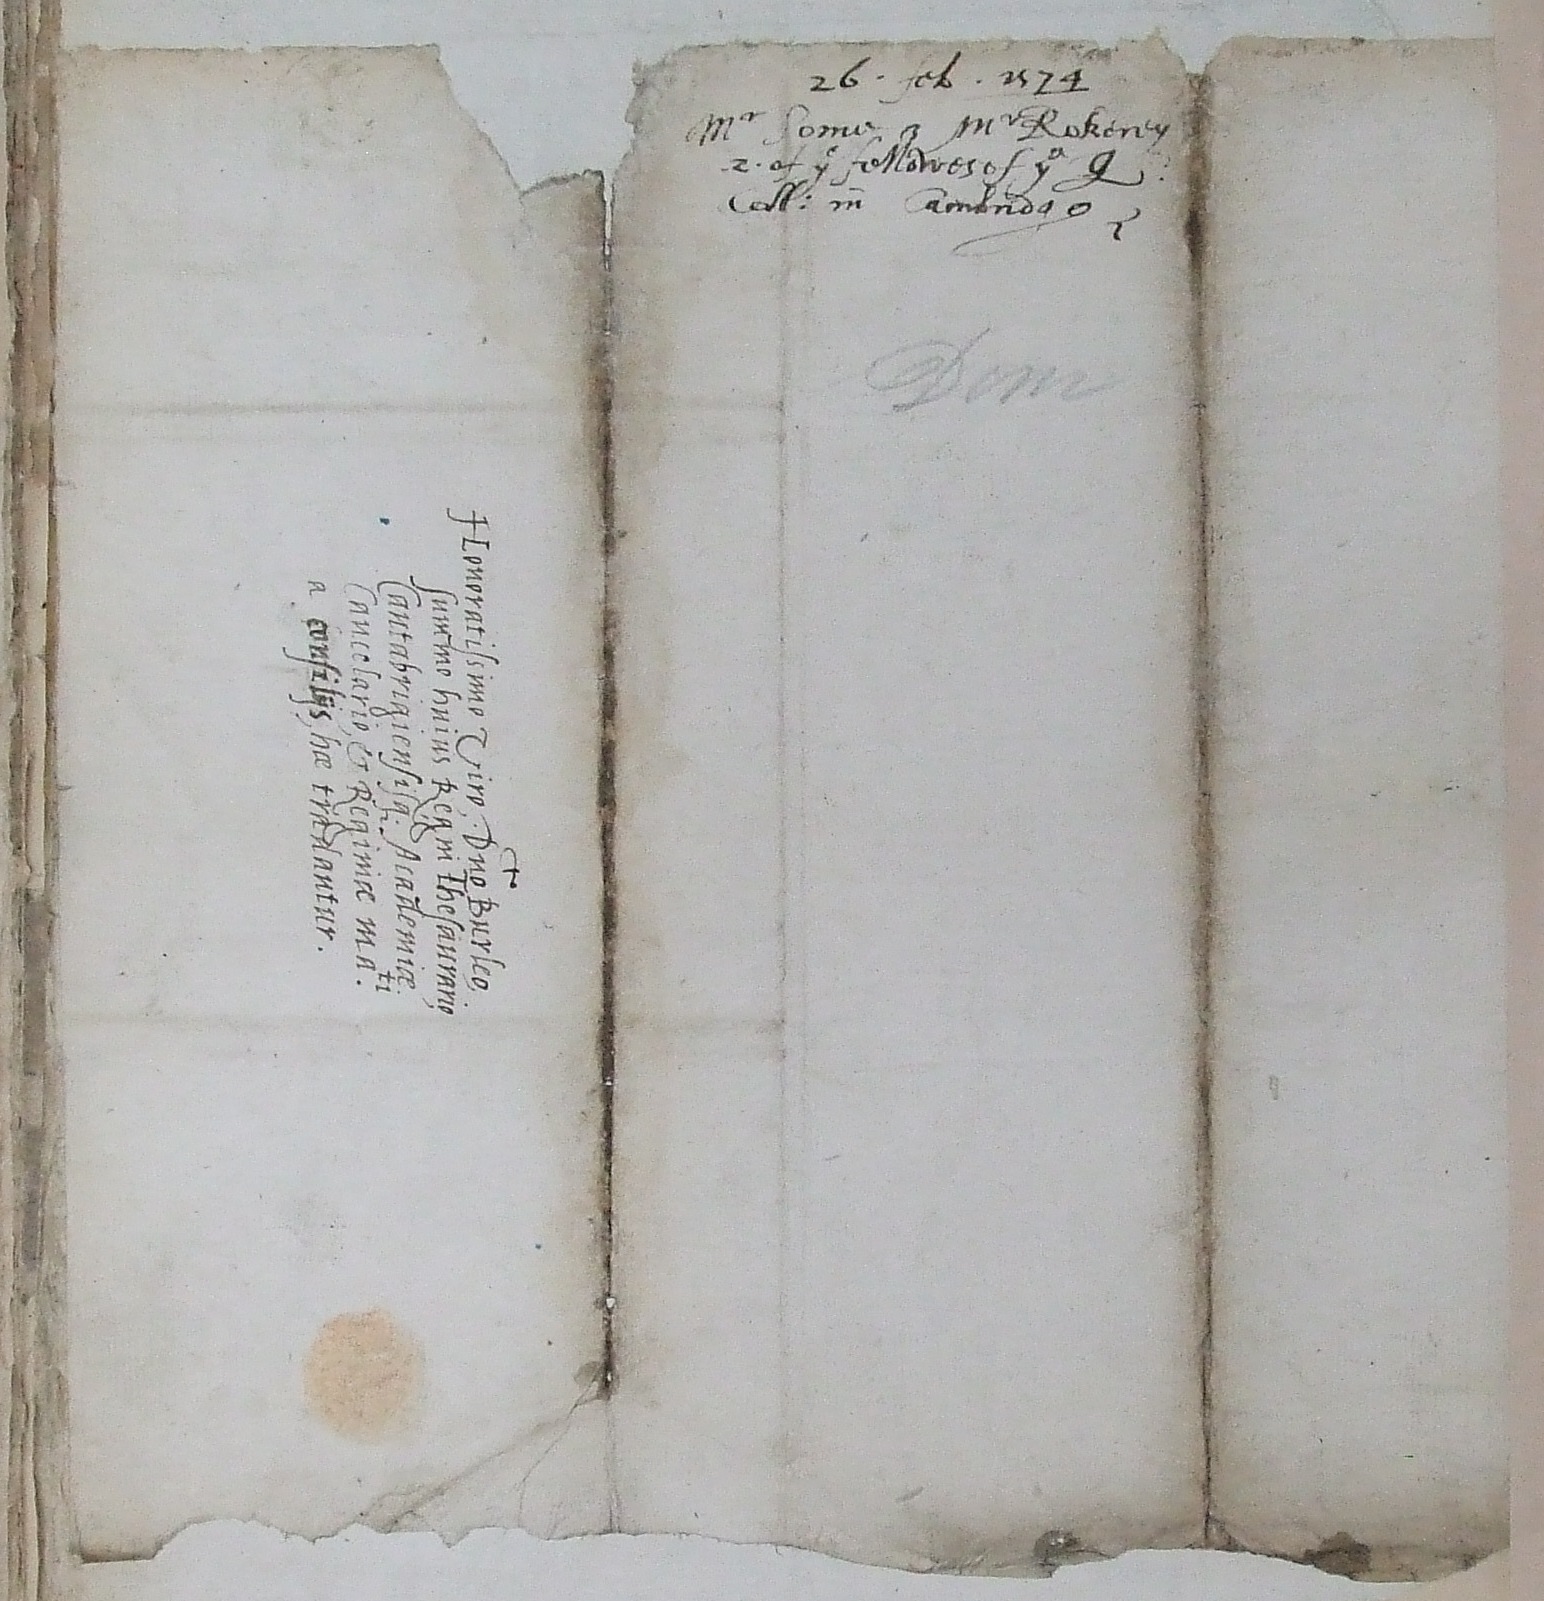 26 · feb · 1574
Mr Some & Mr Rokerey
2. of ye fellowes of ye Q
Coll: in Cambridge
Dom
Honoratissimo Viro, Dno Burleo,
summo huius Regni thesaurario,
Cantabrigiensisq; Academiæ
Cancelario, & Reginæ ma.ti
a consilijs, hæ tradantur.